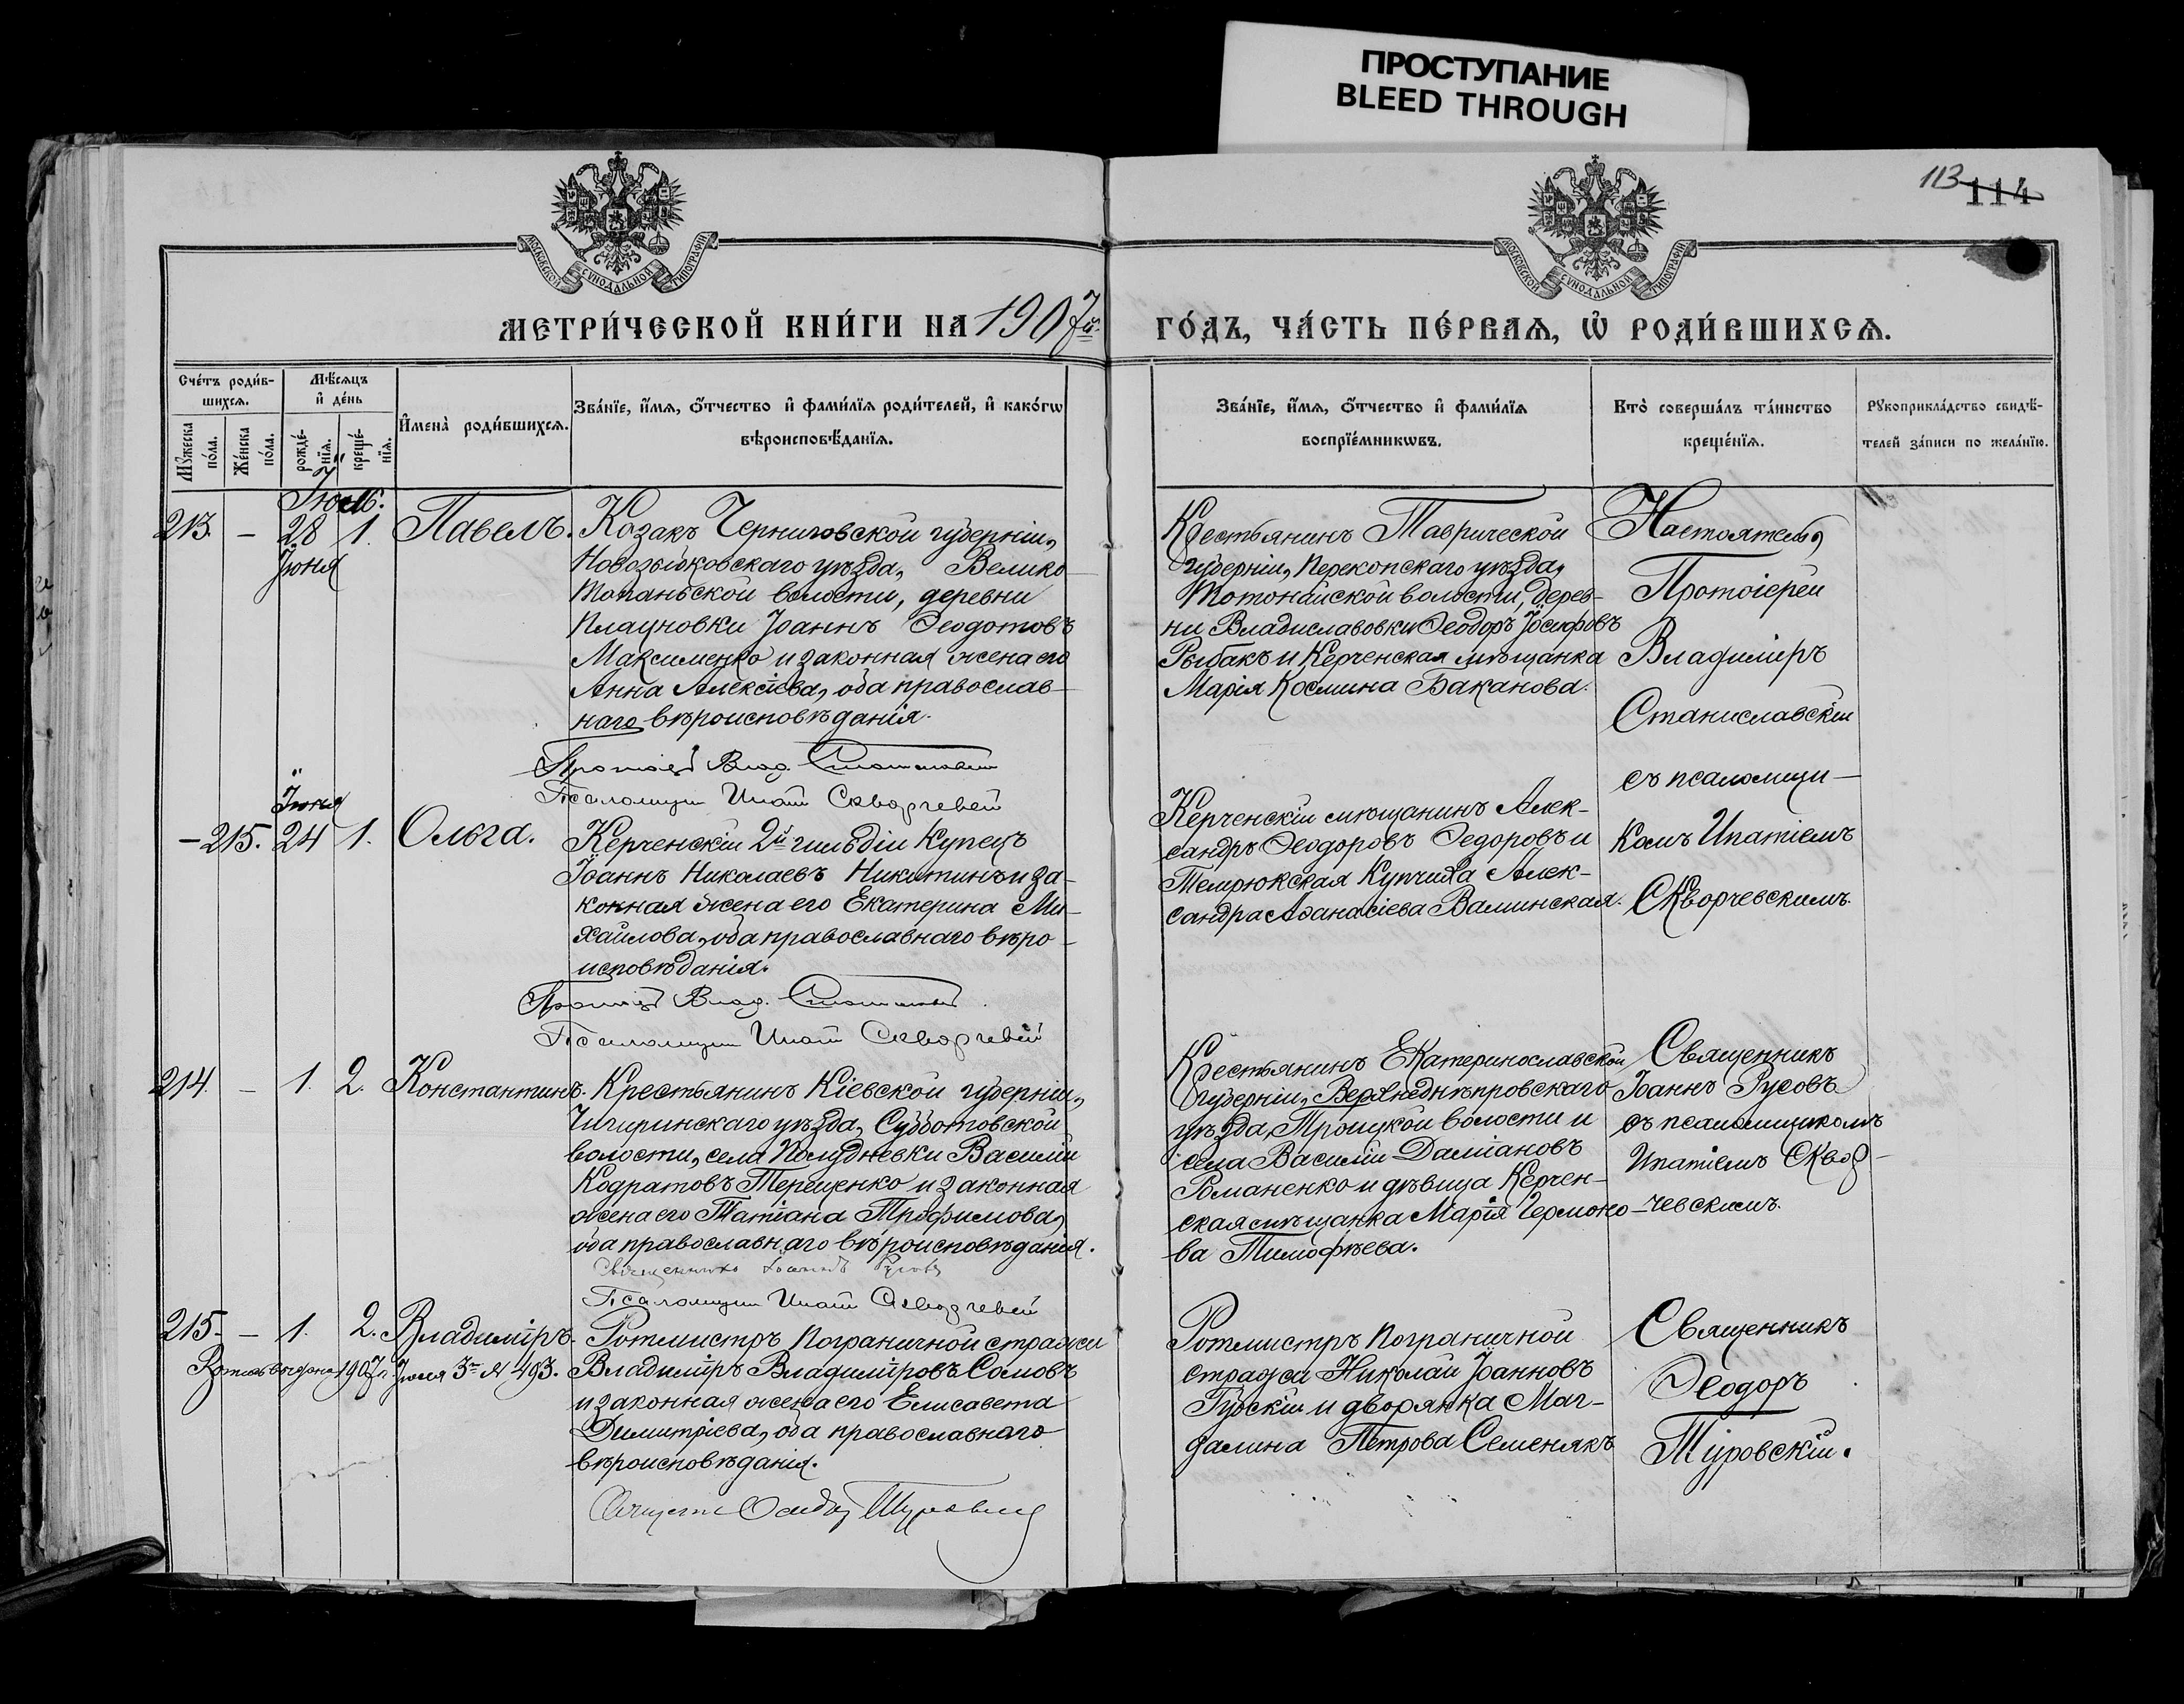 ПРОСТУПАНИЕ
BLEED THROUGH
113 114
МОСКОВСКОЙ СѴНОДАЛЬНОЙ ТИПОГРАФІИ
МОСКОВСКОЙ СѴНОДАЛЬНОЙ ТИПОГРАФІИ
МЕТРИ́ЧЕСКОЙ КНИ́ГИ НА 1907й
ГО́ДЪ, ЧА́СТЬ ПЕ́РВАѦ, Ѡ҆ РОДИ́ВШИХСѦ.
Сче́тъ роди́в-
шихсѧ.
Мꙋжеска по́ла.
Же́нска по́ла.
Мѣ́сѧцъ
и҆ де́нь
рожде́-
нїѧ.
креще́-
нїѧ.
И҆мена̀ роди́вшихсѧ.
Зва́нїе, и҆́мѧ, ѻ҆́тчество и҆ фами́лїѧ роди́телей, и҆ како́гѡ
вѣроисповѣ́данїѧ.
Зва́нїе, и҆́мѧ, ѻ҆́тчество и҆ фами́лїѧ
воспрїе́мникѡвъ.
Кто̀ соверша́лъ та́инство
креще́нїѧ.
Рꙋкоприкла́дство свидѣ́-
телей за́писи по жела́нїю.
Іюль.
213. – 28 1. Павелъ.
Іюня
Козакъ Черниговской губерніи,
Новозыбковскаго уѣзда, Велико
Топаньской волости, деревни
Плауновки Іоаннъ Ѳеодотовъ
Максименко и законная жена его
Анна Алексіева, оба православ-
наго вѣроисповѣданія.
Псаломщик Ипат Скворчевскій
Крестьянинъ Таврической
губерніи, Перекопскаго уѣзда,
Тотонайской волости, дерев-
ни Владиславовки Ѳеодоръ Іосифовъ
Рыбакъ и Керченская мѣщанка
Марія Космина Баканова.
Настоятель,
Протоіерей
Владиміръ
Станиславскій
съ псаломщи-
комъ Ипатіемъ
Скворчевскимъ.
Іюня
– 215. 24 1. Ольга.
Керченскій 2й гильдіи Купецъ
Іоаннъ Николаевъ Никитинъ и за-
конная жена его Екатерина Ми-
хайлова, оба православнаго вѣро-
исповѣданія.
Псаломщик Ипат Скворчевскій
Керченскій мѣщанинъ Алек-
сандръ Ѳеодоровъ Ѳедоровъ и
Темрюкская Купчиха Алек-
сандра Аѳанасіева Валинская.
214. – 1. 2. Константинъ.
Крестьянинъ Кіевской губерніи,
Чигиринскаго уѣзда, Субботовской
волости, села Полуднѣвки Василій
Кодратовъ Терещенко и законная
жена его Татіана Трофимова,
оба православнаго вѣроисповѣданія.
Священникъ Іоаннъ Русовъ
Псаломщик Ипат Скворчевскій
Крестьянинъ Екатеринославской
губерніи, Верхнеднѣпровскаго
уѣзда, Троицкой волости и
села Василій Даміановъ
Романенко и дѣвица Керчен-
ская мѣщанка Марія Гермоно-
ва Тимофѣева.
Священникъ
Іоаннъ Русовъ
съ псаломщикомъ
Ипатіемъ Сквор-
чевскимъ.
215. – 1. 2. Владиміръ.
1907г. Іюля 3го № 493.
Ротмистръ Пограничной стражи
Владиміръ Владиміровъ Сомовъ
и законная жена его Елисавета
Димитріева, оба православнаго
вѣроисповѣданія.
Ротмистръ Пограничной
стражи Николай Іоанновъ
Гудскій и дворянка Маг-
далина Петрова Семенякъ
Священникъ
Ѳеодоръ
Туровскій.